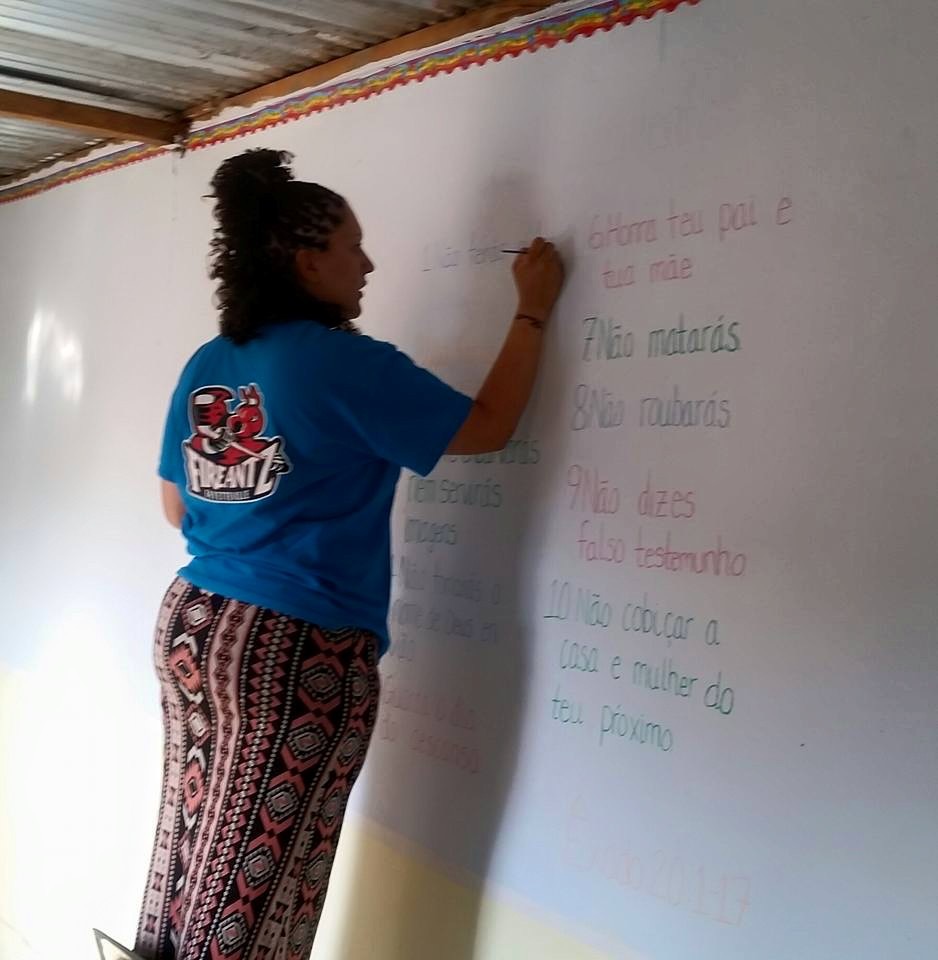 FIREANTZ
FAYETTEVILLE
1 Não
nem servirás
imagens
Não tomarás o
nome de Deus em
vão
Guarda o dia
do descanso
6 Honra teu pai e
tua mãe
7 Não matarás
8 Não roubarás
9 Não dizes
falso testemunho
10 Não cobiçar a
casa e mulher do
teu próximo
Êxodo 20:1-17